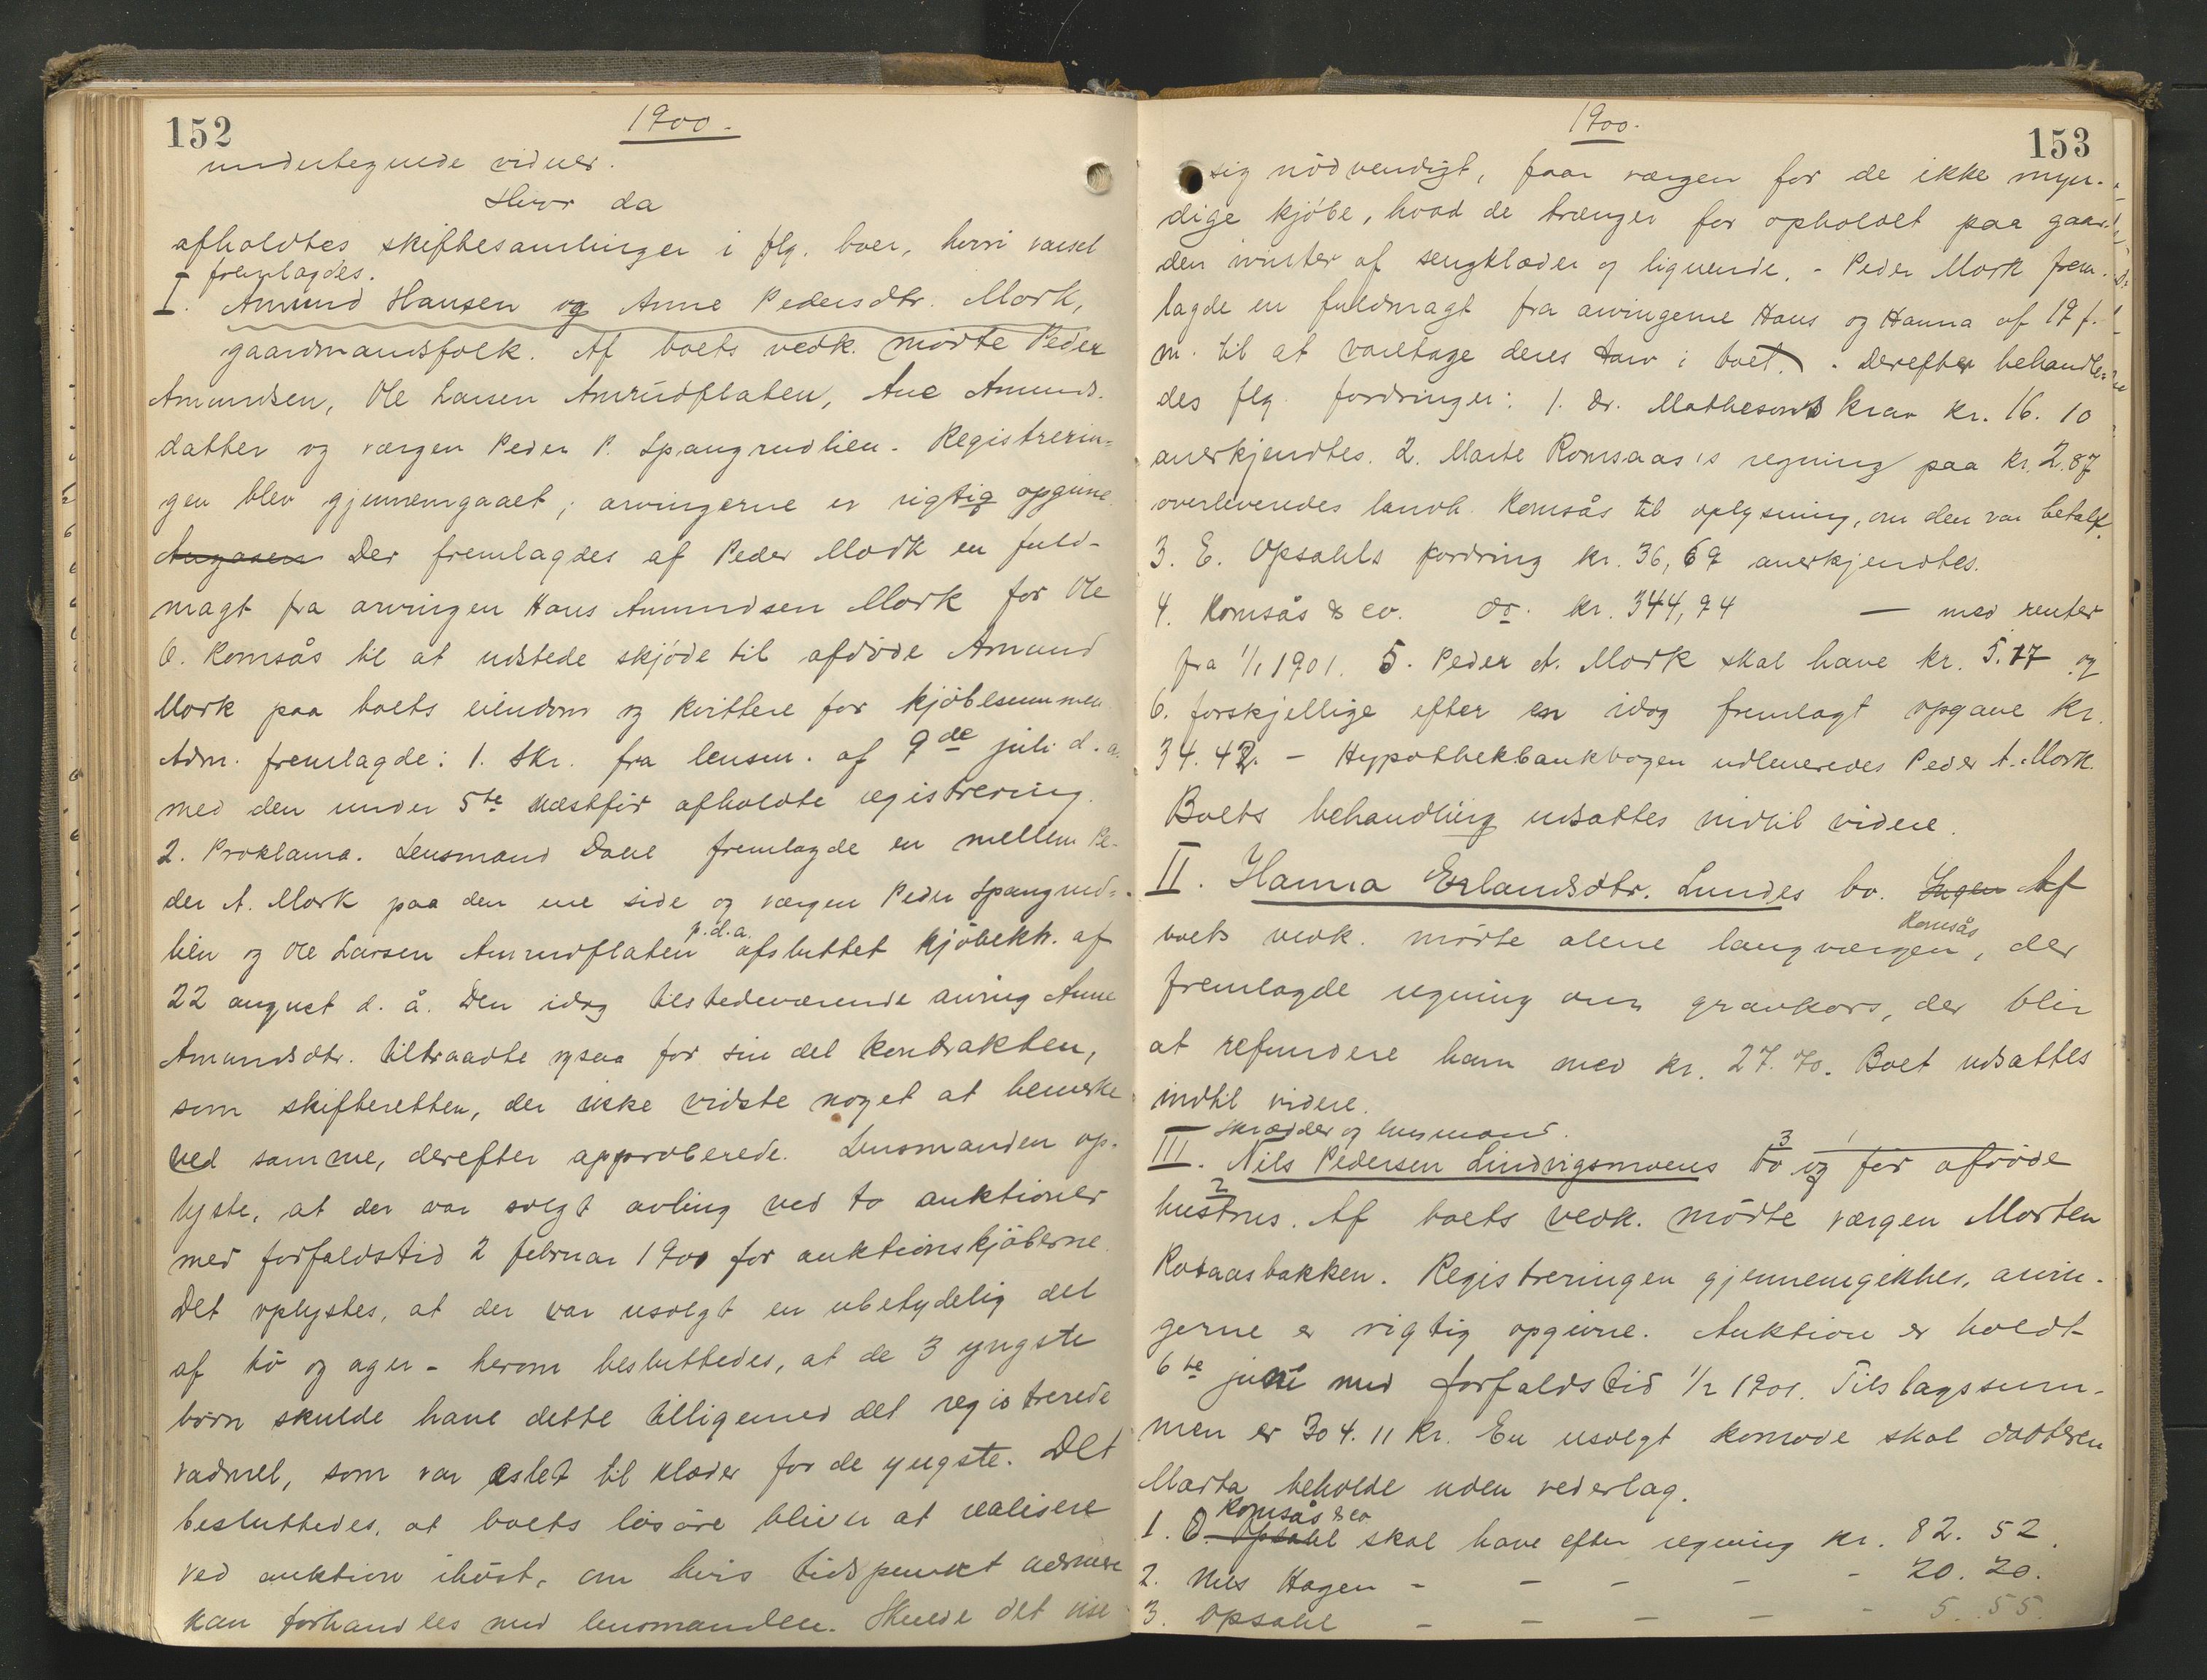 152
1900.
undertegnede vidner.
Hvor da
afholdtes skiftesamlinger i flg. boer, hvori varsel
fremlagdes.
I. Amund Hansen og Anne Pedersdtr. Mork,
gaardmandsfolk. Af boets vedk. mødte Peder
Amundsen, Ole Larsen Amrudflaten, Ane Amunds-
datter og vergen Peder P. Spangrudlien. Registrerin-
gen blev gjennemgaaet; arvingerne er rigtig opgivne.
Der fremlagdes af Peder Mork en fuld-
magt fra arvingen Hans Amundsen Mork for Ole
O. Komsås til at udstede skjøde til afdøde Amund
Mork paa boets eiendom og kvittere for kjøbesummen.
Adm. fremlagde: 1. Skr. fra lensm. af 9de juli d. a.
med den under 5te næstfør afholdte registrering.
2. Proklama. Lensmand Dahl fremlagde en mellem Pe-
der A. Mork paa den ene side og vergen Peder Spangrud-
lien og Ole Larsen Amrudflaten p.d.a. afsluttet kjøbekh. af
22 august d. å. Den idag tilstedeværende arving Anne
Amundsdtr. tiltraadte ogsaa for sin del kontrakten,
som skifteretten, der ikke vidste noget at bemerke
ved samme, derefter approberede. Lensmanden op-
lyste, at der var solgt avling ved to auktioner
med forfaldstid 2 februar 1900 for auktionskjøberne.
Det oplystes, at der var usolgt en ubetydelig del
af hø og ager - herom besluttedes, at de 3 yngste
børn skulde have dette tilligemed det registrerede
vadmel, som var eslet til klæder for de yngste. Det
besluttedes, at boets løsøre bliver at realisere
ved auktion ihøst, om hvis tidspunkt nærmere
kan forhandles med lensmanden. Skulde det vise
153
1900.
sig nødvendigt, faar vergen for de ikke myn-
dige kjøbe, hvad de trænger for opholdet paa gaar-
den ivinter af sengklæder og lignende. - Peder Mork frem-
lagde en fuldmagt fra arvingerne Hans og Hanna af 19 f.
m. til at varetage deres tarv i boet. - Derefter behandle-
des flg. fordringer: 1. Dr. Mathesons krav kr. 16.10
anerkjendtes. 2. Marte Romsaas's regning paa kr. 2.87
overleveredes landh. Komsås til oplysning, om den var betalt.
3. E. Opsahls fordring kr. 36,69 anerkjendtes.
4. Komsås & co. do. kr. 344,94 — med renter
fra 1/1 1901. 5. Peder A. Mork skal have kr. 5.17 og
6. forskjellige efter en idag fremlagt opgave kr.
34.42. - Hypothekbankbogen udleveredes Peder A. Mork.
Boets behandling udsattes indtil videre.
II. Hanna Erlandsdtr. Lundes bo. Ingen Af
boets vedk. mødte alene laugværgen Komsås, der
fremlagde regning om gravkors, der blir
at refundere ham med kr. 27.70. Boet udsattes
indtil videre.
skrædder og husmand.
III. Nils Pedersen Lindvigsmoens 3 bo og 1 før afdøde
2 hustrus. Af boets vedk. mødte vergen Morten
Rotaasbakken. Registreringen gjennemgikkes, arvin-
gerne er rigtig opgivne. Auktion er holdt
6te juni med forfaldstid 1/2 1901. Tilslagssum-
men er 304.11 kr. En usolgt komode skal datteren
Marta beholde uden vederlag.
Komsås & co
1. O. Opsahl skal have efter regning kr. 82.52.
2. Nils Hagen - - - - - 20.20.
3. Opsahl - - - - - 5.55.